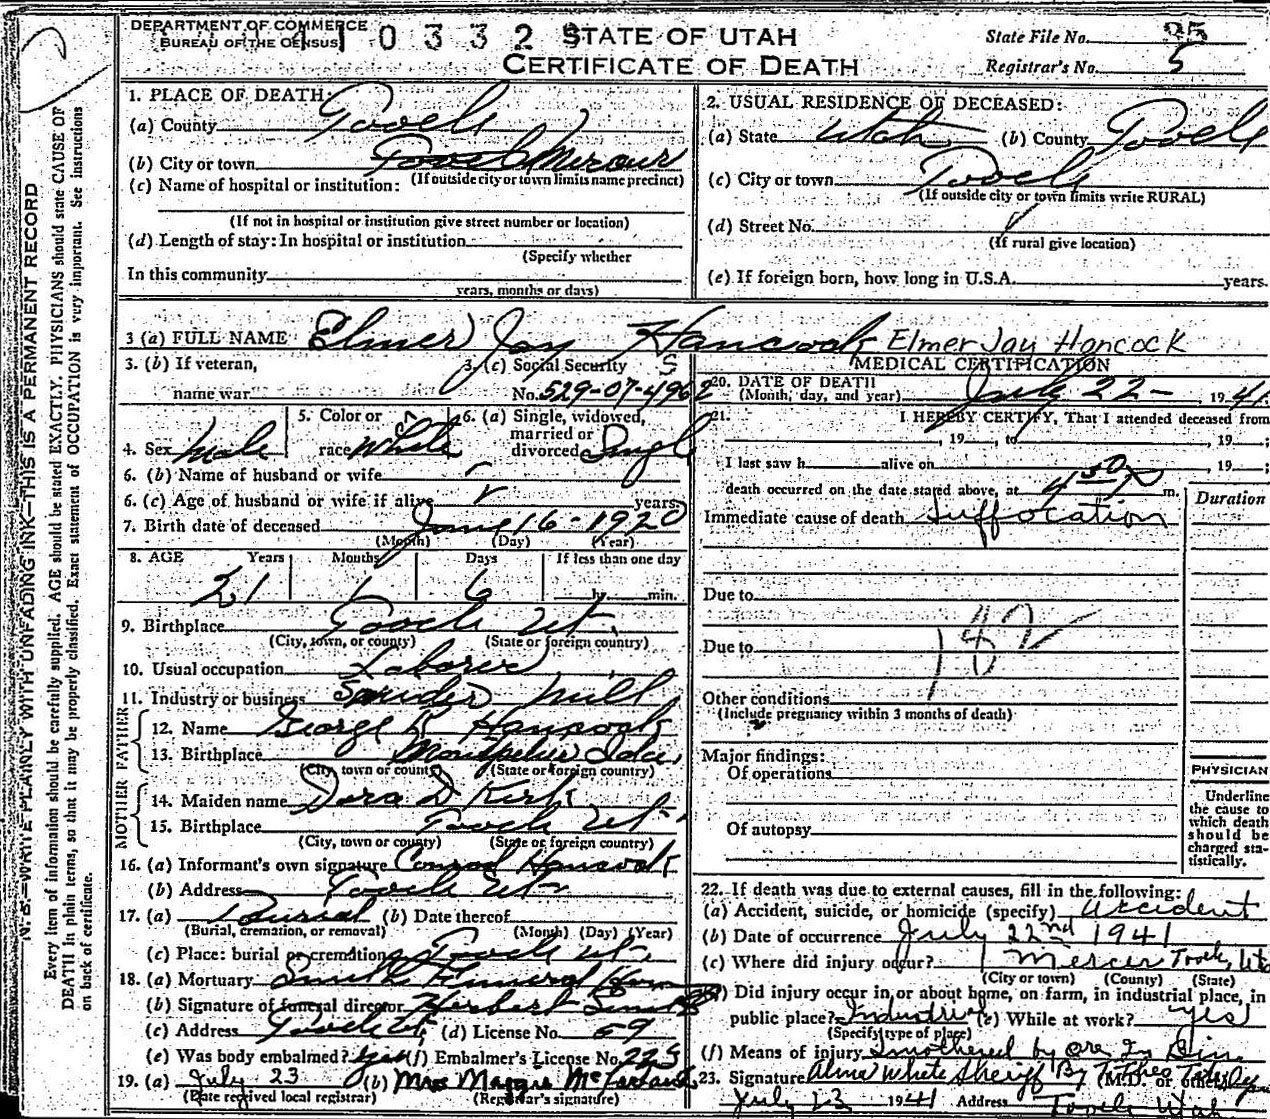 DEPARTMENT OF COMMERCE
BUREAU OF THE CENSUS
1 0 3 3 2 9
STATE OF UTAH
CERTIFICATE OF DEATH
State File No. 25
Registrar's No. 5
N. B.—WRITE PLAINLY WITH UNFADING INK—THIS IS A PERMANENT RECORD
Every item of information should be carefully supplied. AGE should be stated EXACTLY. PHYSICIANS should state CAUSE OF
DEATH in plain terms, so that it may be properly classified. Exact statement of OCCUPATION is very important. See instructions
on back of certificate.
1. PLACE OF DEATH:
(a) County Tooele
(b) City or town Tooele Mercur
(If outside city or town limits name precinct)
(c) Name of hospital or institution:
(If not in hospital or institution give street number or location)
(d) Length of stay: In hospital or institution
(Specify whether
In this community
years, months or days)
2. USUAL RESIDENCE OF DECEASED:
(a) State Utah (b) County Tooele
(c) City or town Tooele
(If outside city or town limits write RURAL)
(d) Street No.
(If rural give location)
(e) If foreign born, how long in U.S.A. years.
3 (a) FULL NAME Elmer Jay Hancock Elmer Jay Hancock
3. (b) If veteran,
name war
3. (c) Social Security
No. 529-07-4962
4. Sex Male
5. Color or
race White
6. (a) Single, widowed,
married or
divorced Single
6. (b) Name of husband or wife
6. (c) Age of husband or wife if alive years
7. Birth date of deceased June 16 - 1920
(Month) (Day) (Year)
8. AGE Years Months Days If less than one day
21 1 6 hr. min.
9. Birthplace Tooele Ut.
(City, town, or county) (State or foreign country)
10. Usual occupation Laborer
11. Industry or business Snyder Mill
FATHER
12. Name George R Hancock
13. Birthplace Montpelier Ida.
(City, town or county) (State or foreign country)
MOTHER
14. Maiden name Dora D Kirk
15. Birthplace Tooele Ut.
(City, town or county) (State or foreign country)
16. (a) Informant's own signature Conrad Hancock
(b) Address Tooele Ut
17. (a) Burial (b) Date thereof
(Burial, cremation, or removal) (Month) (Day) (Year)
(c) Place: burial or cremation Tooele Ut.
18. (a) Mortuary Smith Funeral Home
(b) Signature of funeral director Herbert Smith
(c) Address Tooele Ut. (d) License No. 59
(e) Was body embalmed? yes (f) Embalmer's License No. 225
19. (a) July 23 (b) Mrs Maggie McFarland
(Date received local registrar) (Registrar's signature)
MEDICAL CERTIFICATION
20. DATE OF DEATH
(Month, day, and year) July 22 - , 1941
21. I HEREBY CERTIFY, That I attended deceased from
, 19 , to , 19 ;
I last saw h alive on , 19 ;
death occurred on the date stated above, at 4 50 P m.
Duration
Immediate cause of death Suffocation
Due to
Due to
182
Other conditions
(Include pregnancy within 3 months of death)
Major findings:
Of operations
Of autopsy
PHYSICIAN
Underline
the cause to
which death
should be
charged sta-
tistically.
22. If death was due to external causes, fill in the following:
(a) Accident, suicide, or homicide (specify) Accident
(b) Date of occurrence July 22nd 1941
(c) Where did injury occur? Mercur Tooele, Utah
(City or town) (County) (State)
(d) Did injury occur in or about home, on farm, in industrial place, in
public place? Industrial (e) While at work? yes
(Specify type of place)
(f) Means of injury Smothered by ore In Bin
23. Signature Alma White Sheriff By (M.D. or other)
July 23 1941 Address Tooele Utah